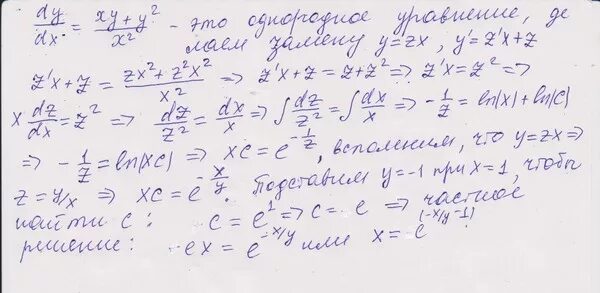 dy/dx = (xy+y²)/x² - это однородное уравнение, де
лаем замену y=zx, y'=z'x+z
z'x+z = (zx²+z²x²)/x² ⇒ z'x+z=z+z² ⇒ z'x=z² ⇒
x dz/dx = z² ⇒ dz/z² = dx/x ⇒ ∫dz/z² = ∫dx/x ⇒ -1/z = ln(x)+ln(C)
⇒ -1/z = ln(xC) ⇒ xC = e^(-1/z), вспомним, что y=zx ⇒
z=y/x ⇒ xC = e^(-x/y). Подставим y=-1 при x=1, чтобы
найти C: C=e¹ ⇒ C=e ⇒ частное
решение: ex = e^(-x/y) или x = e^(-x/y-1)